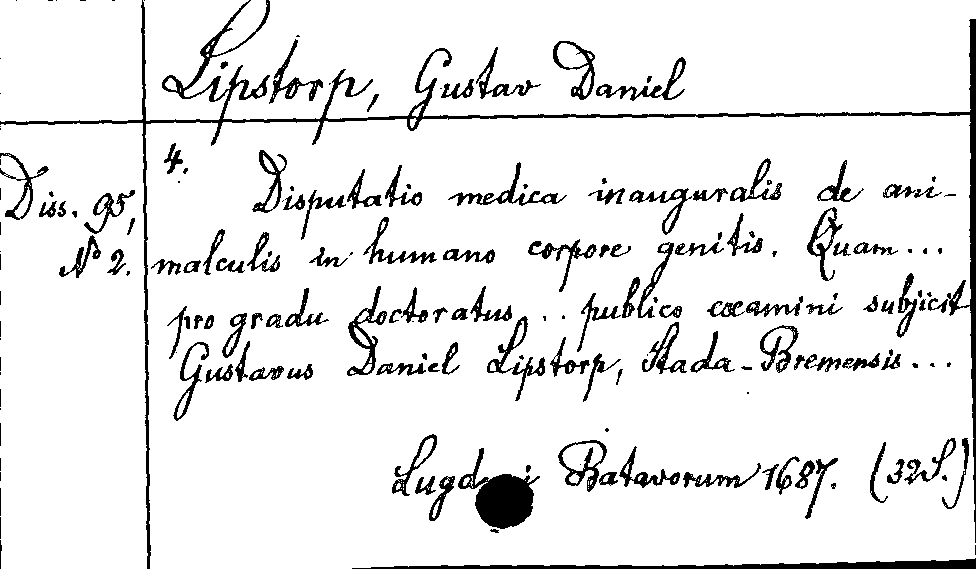 Lipstorp, Gustav Daniel
4.
Diss. 95,
No 2.
Disputatio medica inauguralis de ani-
malculis in humano corpore genitis. Quam...
pro gradu doctoratus... publico examini subjicit
Gustavus Daniel Lipstorp, Stada-Bremensis...
Batavorum 1687. (32S.)